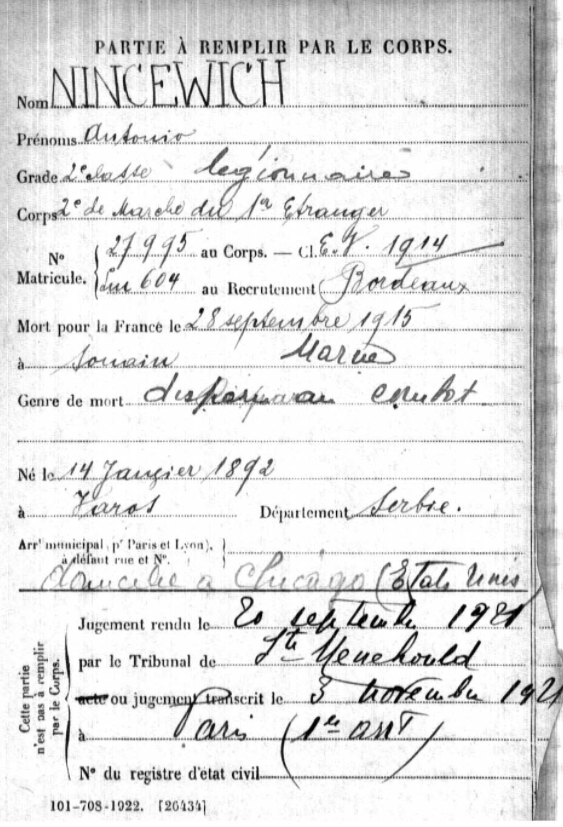 PARTIE À REMPLIR PAR LE CORPS.
Nom NINCEWICH
Prénoms Antonio
Grade 2e classe légionnaire
Corps 2e de Marche du 1er Etranger
N° Matricule. 27995 au Corps. — Cl. E.V. 1914
604 au Recrutement Bordeaux
Mort pour la France le 28 septembre 1915
à Souain Marne
Genre de mort disparu au combat
Né le 14 Janvier 1892
à Département Serbie.
Arrt municipal, pr Paris et Lyon),
à défaut rue et N°.
domicilié à Chicago (Etats Unis
Cette partie n'est pas à remplir par le Corps.
Jugement rendu le 20 septembre 1921
par le Tribunal de Ste Menehould
acte ou jugement transcrit le 3 novembre 1921
à Paris (1er arrt)
N° du registre d'état civil
101-708-1922. [26434]